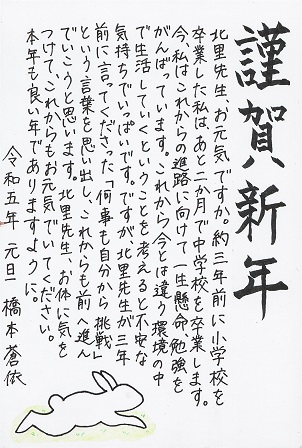 謹賀新年
北里先生、お元気ですか。約三年前に小学校を
卒業した私は、あと二か月で中学校を卒業します。
今、私はこれからの進路に向けて一生懸命、勉強を
がんばっています。これから今とは違う環境の中
で生活していくということを考えると不安な
気持ちでいっぱいです。ですが、北里先生が三年
前に言ってくださった「何事も自分から挑戦」
という言葉を思い出し、これからも前へ進ん
でいこうと思います。北里先生、お体に気を
つけて、これからもお元気でいてください。
本年も良い年でありますように。
令和五年 元旦 橋本蒼依